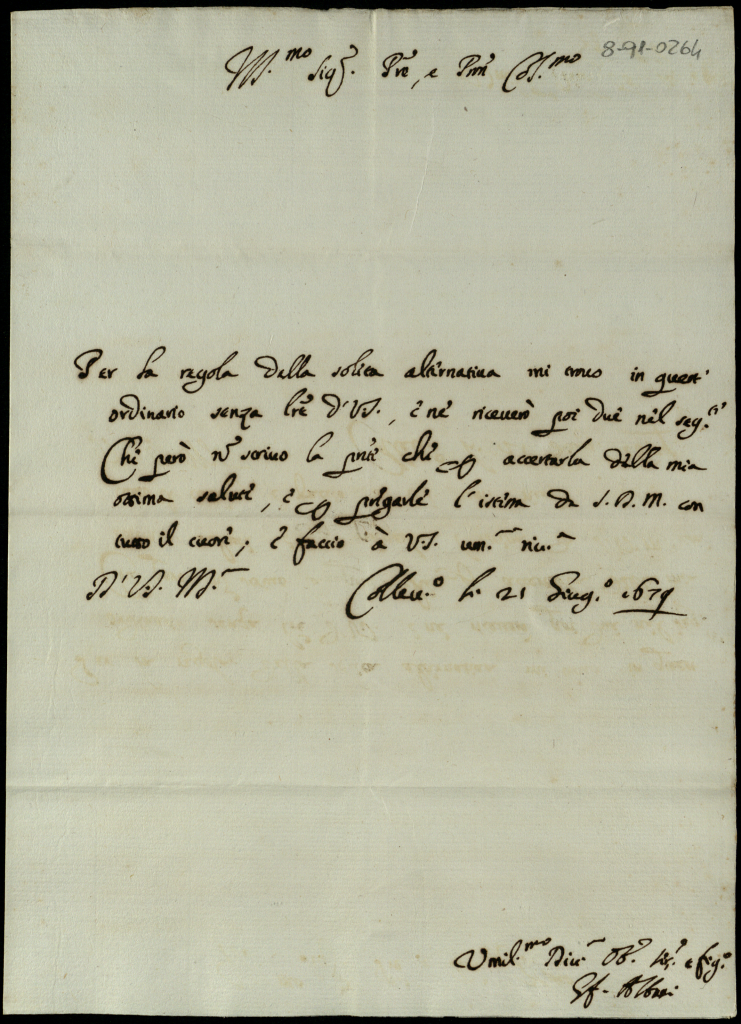 8-91-0264
Ill.mo Sig.r P're, e P'ne Col.mo
Per la regola della solita alternativa mi trovo in quest'
ordinario senza l're d'V.S., è ne riceverò poi due nel seg.te
Che però n' scrivo la p'nte che p accertarla della mia
ottima salute, è p pregarle l'istessa da S.D.M. con
tutto il cuore; è faccio à V.S. um.a riv.a
D'V.S. Ill.
li 21 Giug.o 1679
Umil.mo e fig.o
Albani